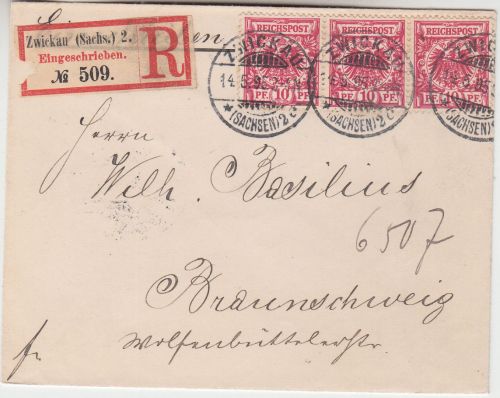 Zwickau (Sachs.) 2.
Eingeschrieben.
№ 509.
R
REICHSPOST REICHSPOST REICHSPOST
10 PF. 10 PF. 10 PF.
ZWICKAU ZWICKAU
* (SACHSEN) 2 c * (SACHSEN) 2 c * (SACHSEN)
Herrn
Wilh. Basilius
6507
Braunschweig
Wolfenbüttelerstr.
fr.